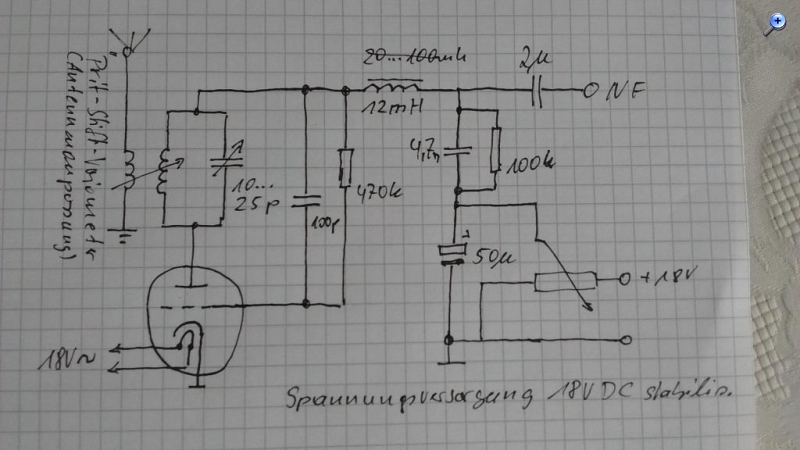 Prit-Stift-Variometer
(Antennenanpassung)
20...100mh
12mH
2µ
NF
4,7n
100k
10...
25p
100p
470k
50µ
+
+18V
18V~
Spannungsversorgung 18V DC stabilis.